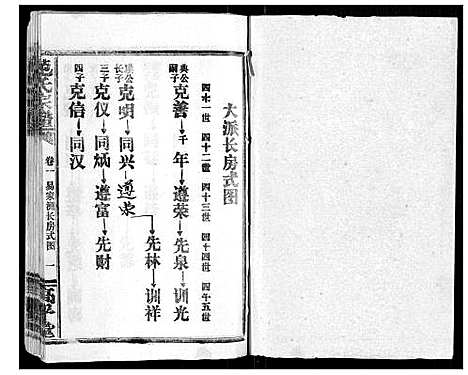 大派长房式图
四十一世 四十二世 四十三世 四十四世 四十五世
典公嗣子 克善 千年 遵荣 先泉 训光
长子 克明 同兴 遵荣 先林 训祥
三子 克仪 同炳 遵富 先财
四子 克信 同汉
范氏宗谱
卷一 易家湾长房式图 一